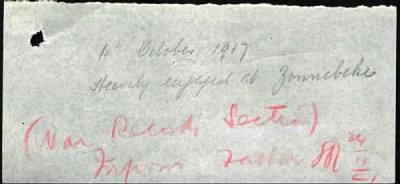 4th October 1917
Heavily engaged at Zonnebeke
(War Records Section)
Inform Father